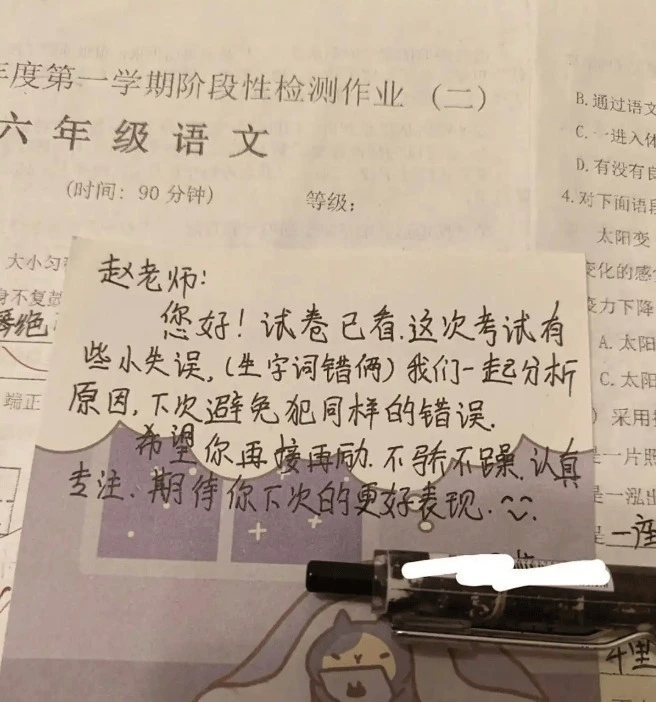 年度第一学期阶段性检测作业（二）
六年级语文
(时间：90分钟)
等级：
大小匀
身不复
琴绝
端正
赵老师：
您好！试卷已看.这次考试有
些小失误,(生字词错俩)我们一起分析
原因,下次避免犯同样的错误.
希望你再接再励.不骄不躁.认真
专注.期待你下次的更好表现.
B.通过语文
C.一进入体
D.有没有良
4.对下面语段
太阳变
变化的感
变力下降
A.太阳
C.太阳
）采用
是一片照
是一泓出
是一座